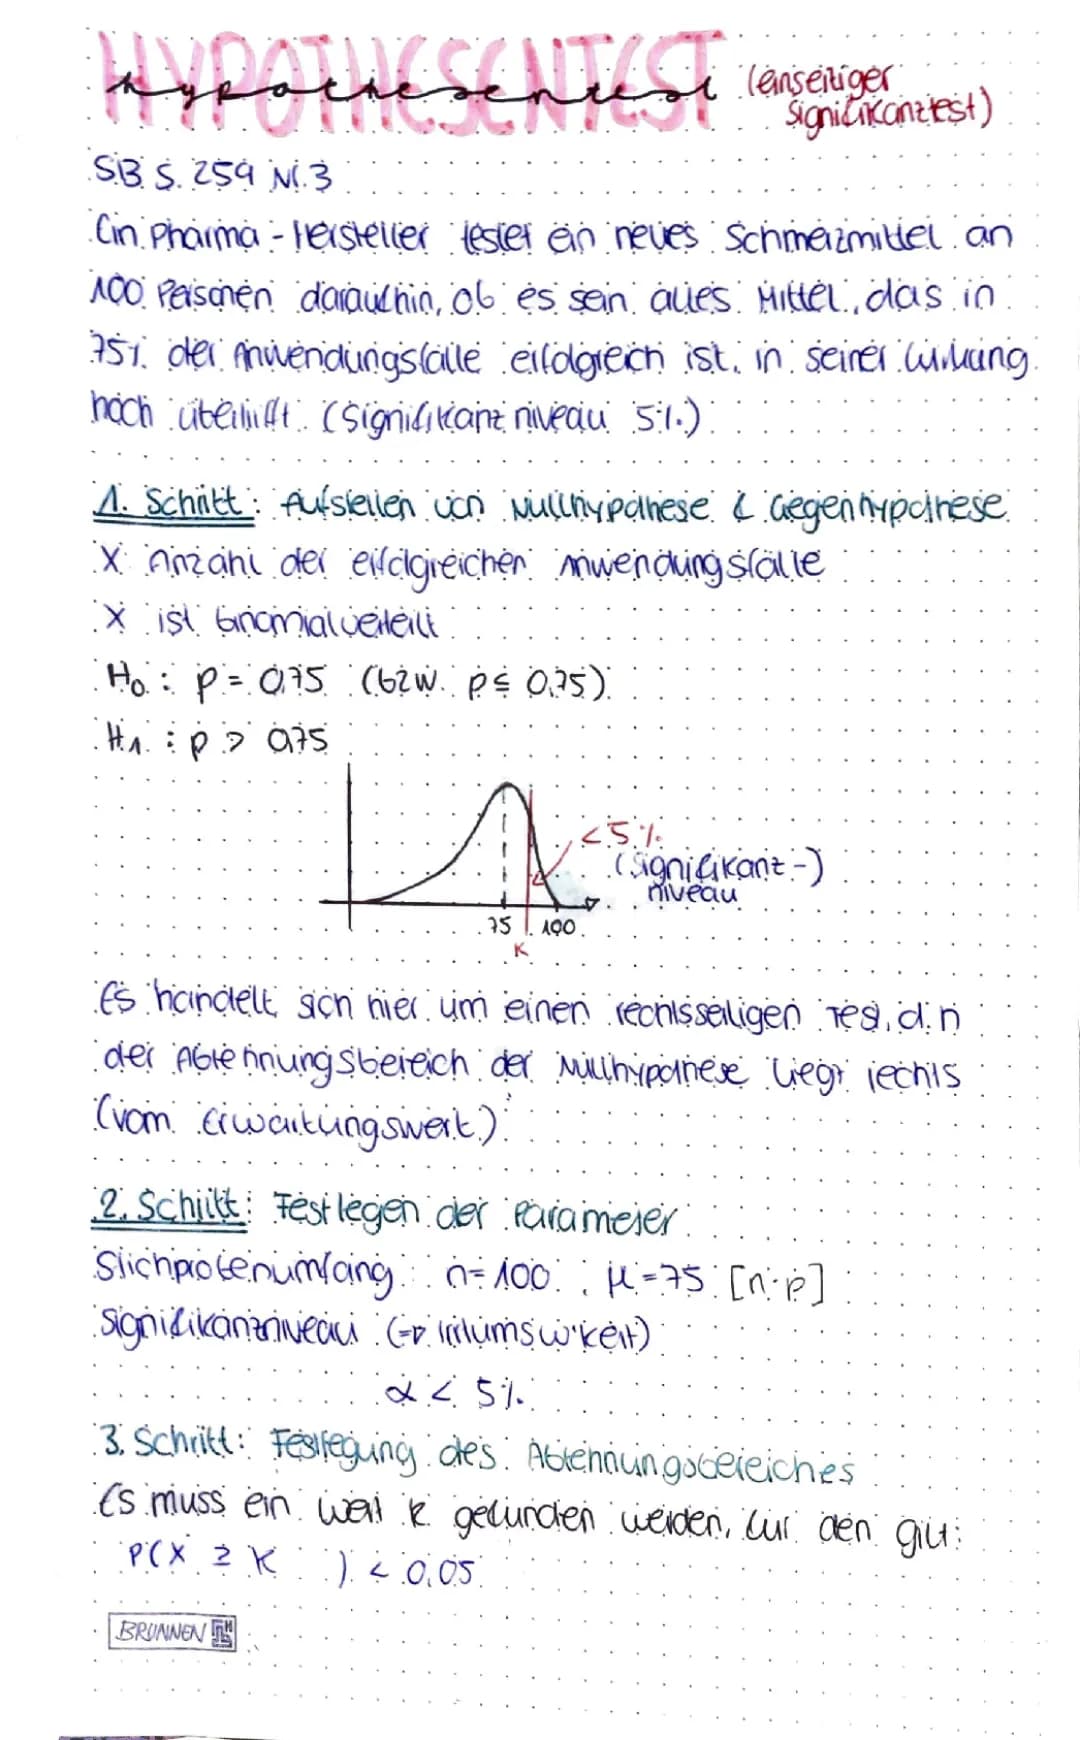 HYPOTHESENTEST
hypothesentest (einseitiger
Signifikanztest)
SB S. 259 Nr. 3
Ein Pharma-Hersteller testet ein neues Schmerzmittel an
100 Personen daraufhin, ob es sein altes Mittel, das in
75% der Anwendungsfälle erfolgreich ist, in seiner Wirkung
noch übertrifft. (Signifikanzniveau 5%)
1. Schritt: Aufstellen von Nullhypothese & Gegenhypothese
X: Anzahl der erfolgreichen Anwendungsfälle
X ist binomialverteilt
H₀: p = 0,75 (bzw. p ≤ 0,75)
H₁: p > 0,75
< 5%
(Signifikanz-)
niveau
75 100
K
Es handelt sich hier um einen rechtsseitigen Test, d.h
der Ablehnungsbereich der Nullhypothese liegt rechts
(vom Erwartungswert).
2. Schritt: Festlegen der Parameter
Stichprobenumfang: n=100 ; μ=75 [n·p]
Signifikanzniveau (=> Irrtumsw'keit)
α < 5%
3. Schritt: Festlegung des Ablehnungsbereiches
Es muss ein Wert k gefunden werden, für den gilt:
P(X ≥ K ) < 0,05
BRUNNEN